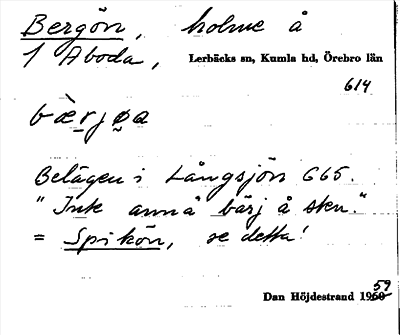 Bergön, holme å
1 Åboda, Lerbäcks sn, Kumla hd, Örebro län
614
bæ̀rjøa
Belägen i Långsjön G65.
"Inte annä bärj å sten."
= Spikön, se detta!
Dan Höjdestrand 1960 59